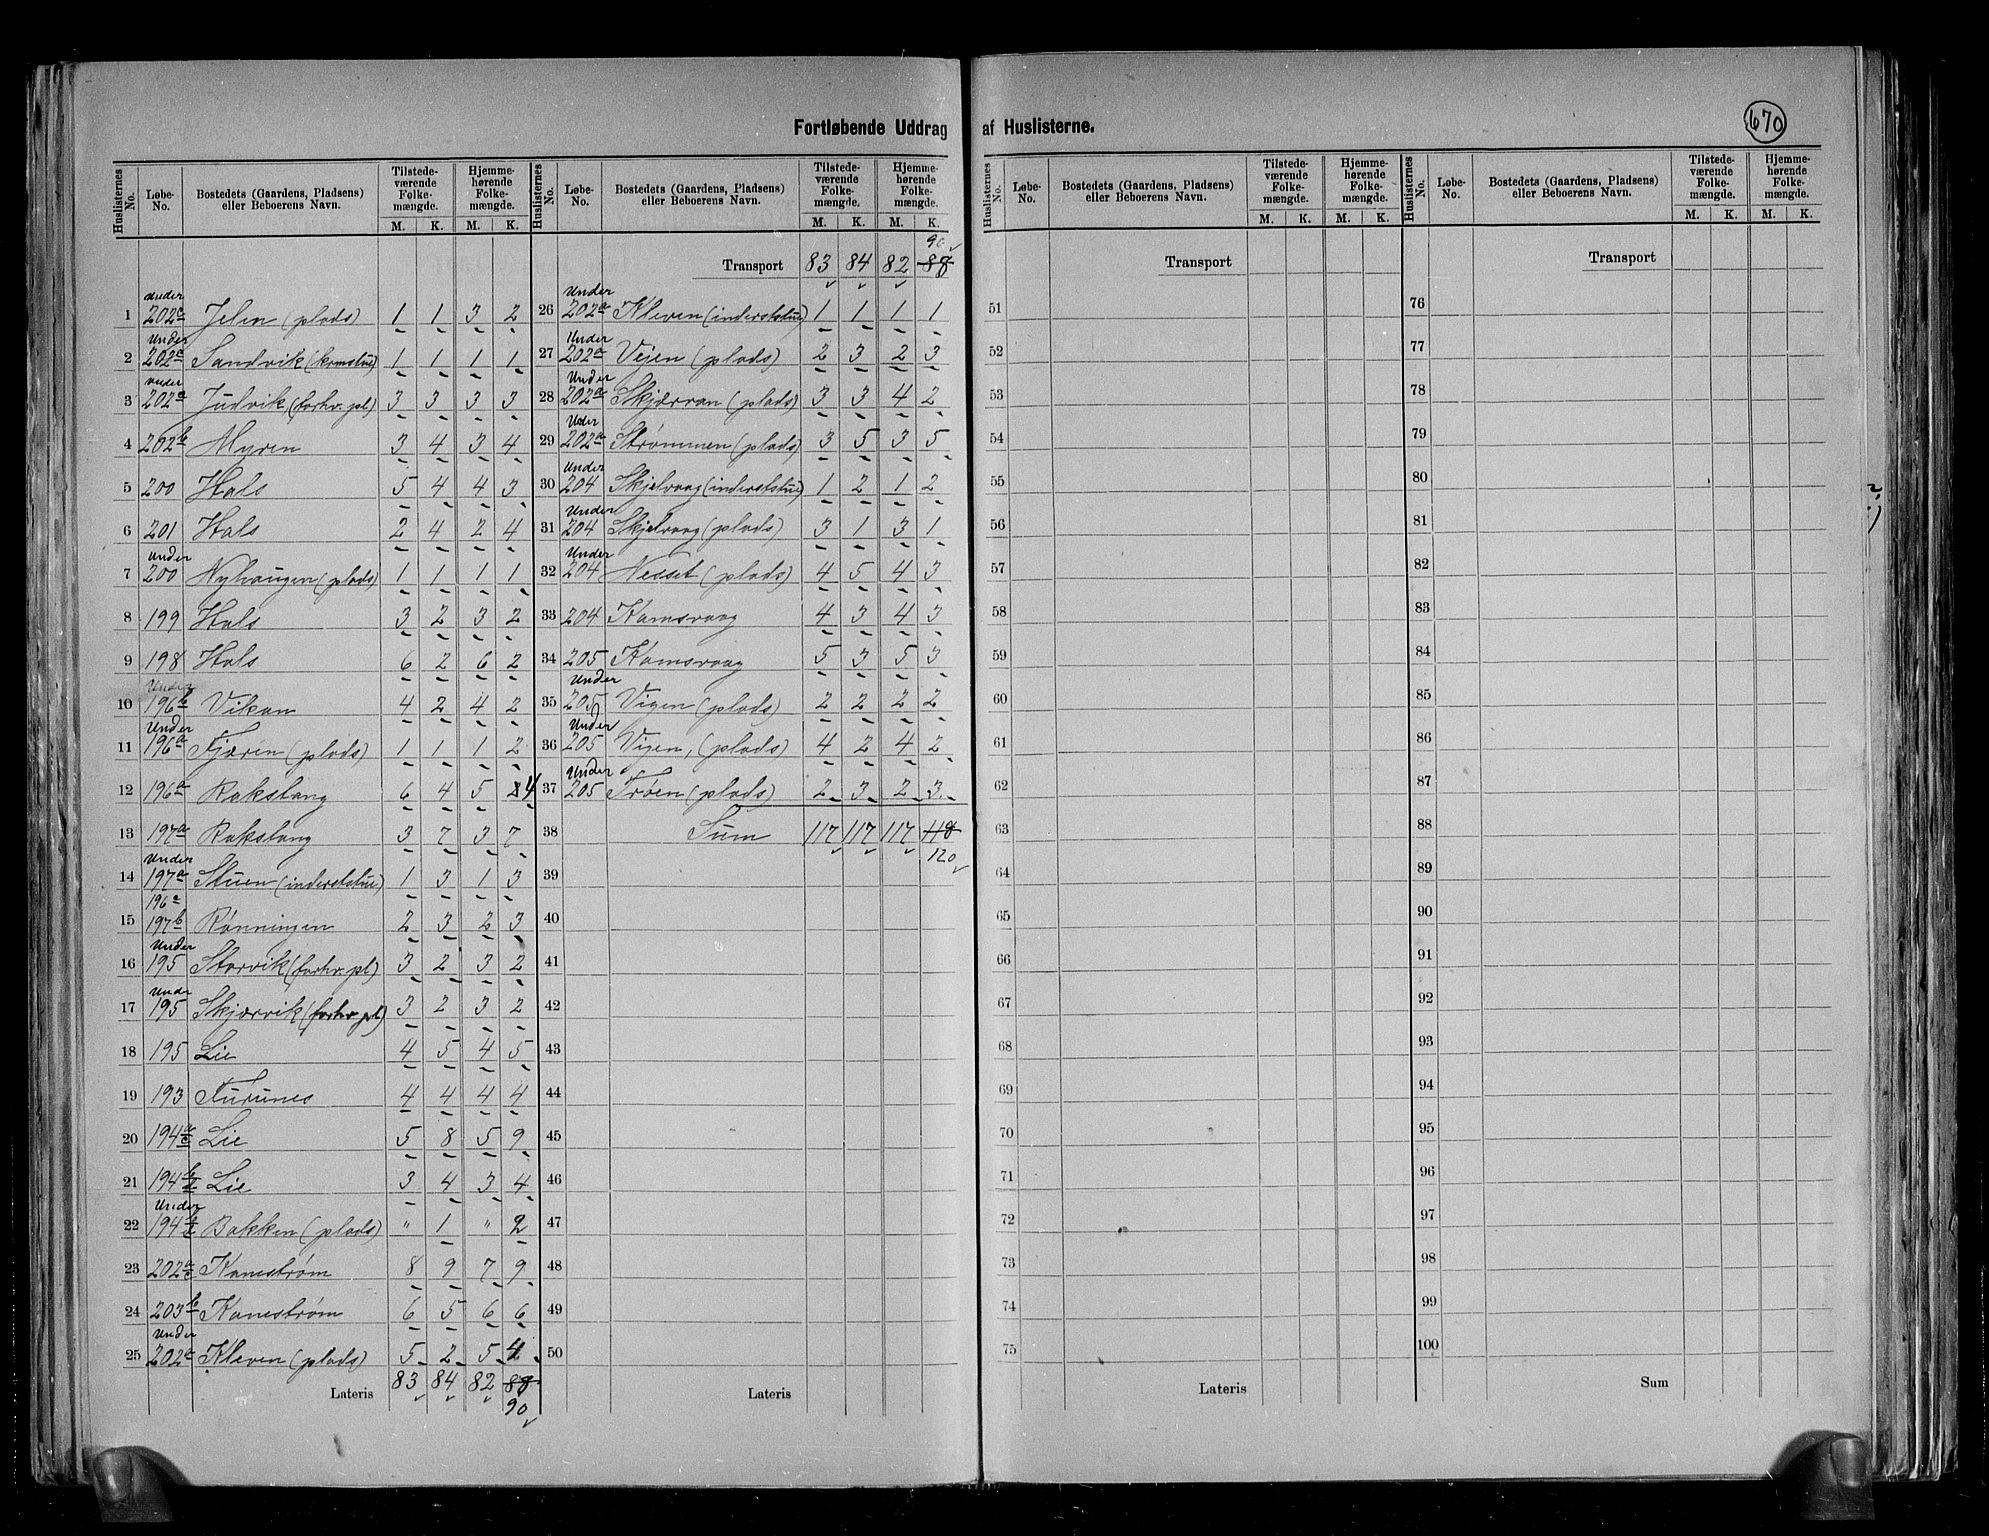 Fortløbende Uddrag af Huslisterne.
670
Huslisternes No. | Løbe-No. | Bostedets (Gaardens, Pladsens) eller Beboerens Navn. | Tilstedeværende Folkemængde. M. K. | Hjemmehørende Folkemængde. M. K.
1 under 202a Jelen (plads) 1 1 3 2
2 Under 202a Sandvik (kornstue) 1 1 1 1
3 under 202a Judvik (forhv. pl) 3 3 3 3
4 202b Myren 3 4 3 4
5 200 Hals 5 4 4 3
6 201 Hals 2 4 2 4
7 under 200 Nyhaugen (plads) 1 1 1 1
8 199 Hals 3 2 3 2
9 198 Hals 6 2 6 2
10 Under 196b Vikan 4 2 4 2
11 Under 196a Fjæren (plads) 1 1 1 2
12 196a Rakstang 6 4 5 4
13 197a Rakstang 3 7 3 7
14 Under 197a Stuen (inderststue) 1 3 1 3
15 196a 197b Rønningen 2 3 2 3
16 Under 195 Storvik (forhv. pl) 3 2 3 2
17 Under 195 Skjærvik (forhv. pl) 3 2 3 2
18 195 Lie 4 5 4 5
19 193 Furunes 4 4 4 4
20 194a/c Lie 5 8 5 9
21 194b Lie 3 4 3 4
22 Under 194b Bakken (plads) " 1 " 2
23 202a/c Kanestrøm 8 9 7 9
24 203b Kanestrøm 6 5 6 6
25 Under 202a Kleven (plads) 5 2 5 4
Lateris 83 84 82 88
90
Huslisternes No. | Løbe-No. | Bostedets (Gaardens, Pladsens) eller Beboerens Navn. | Tilstedeværende Folkemængde. M. K. | Hjemmehørende Folkemængde. M. K.
90
Transport 83 84 82 88
26 Under 202a Kleven (inderststue) 1 1 1 1
27 Under 202a Vejen (plads) 2 3 2 3
28 Under 202a Skjærvan (plads) 3 3 4 2
29 Under 202a Strømmen (plads) 3 5 3 5
30 Under 204 Skjelvaag (inderststue) 1 2 1 2
31 Under 204 Skjelvaag (plads) 3 1 3 1
32 Under 204 Nesset (plads) 4 5 4 3
33 204 Kamsvaag 4 3 4 3
34 205 Kamsvaag 5 3 5 3
35 Under 205 Vigen (plads) 2 2 2 2
36 Under 205 Vigen, (plads) 4 2 4 2
37 Under 205 Trøen (plads) 2 3 2 3
38 Sum 117 117 117 118
120
39
40
41
42
43
44
45
46
47
48
49
50
Lateris
Huslisternes No. | Løbe-No. | Bostedets (Gaardens, Pladsens) eller Beboerens Navn. | Tilstedeværende Folkemængde. M. K. | Hjemmehørende Folkemængde. M. K.
Transport
51
52
53
54
55
56
57
58
59
60
61
62
63
64
65
66
67
68
69
70
71
72
73
74
75
Lateris
Huslisternes No. | Løbe-No. | Bostedets (Gaardens, Pladsens) eller Beboerens Navn. | Tilstedeværende Folkemængde. M. K. | Hjemmehørende Folkemængde. M. K.
Transport
76
77
78
79
80
81
82
83
84
85
86
87
88
89
90
91
92
93
94
95
96
97
98
99
100
Sum